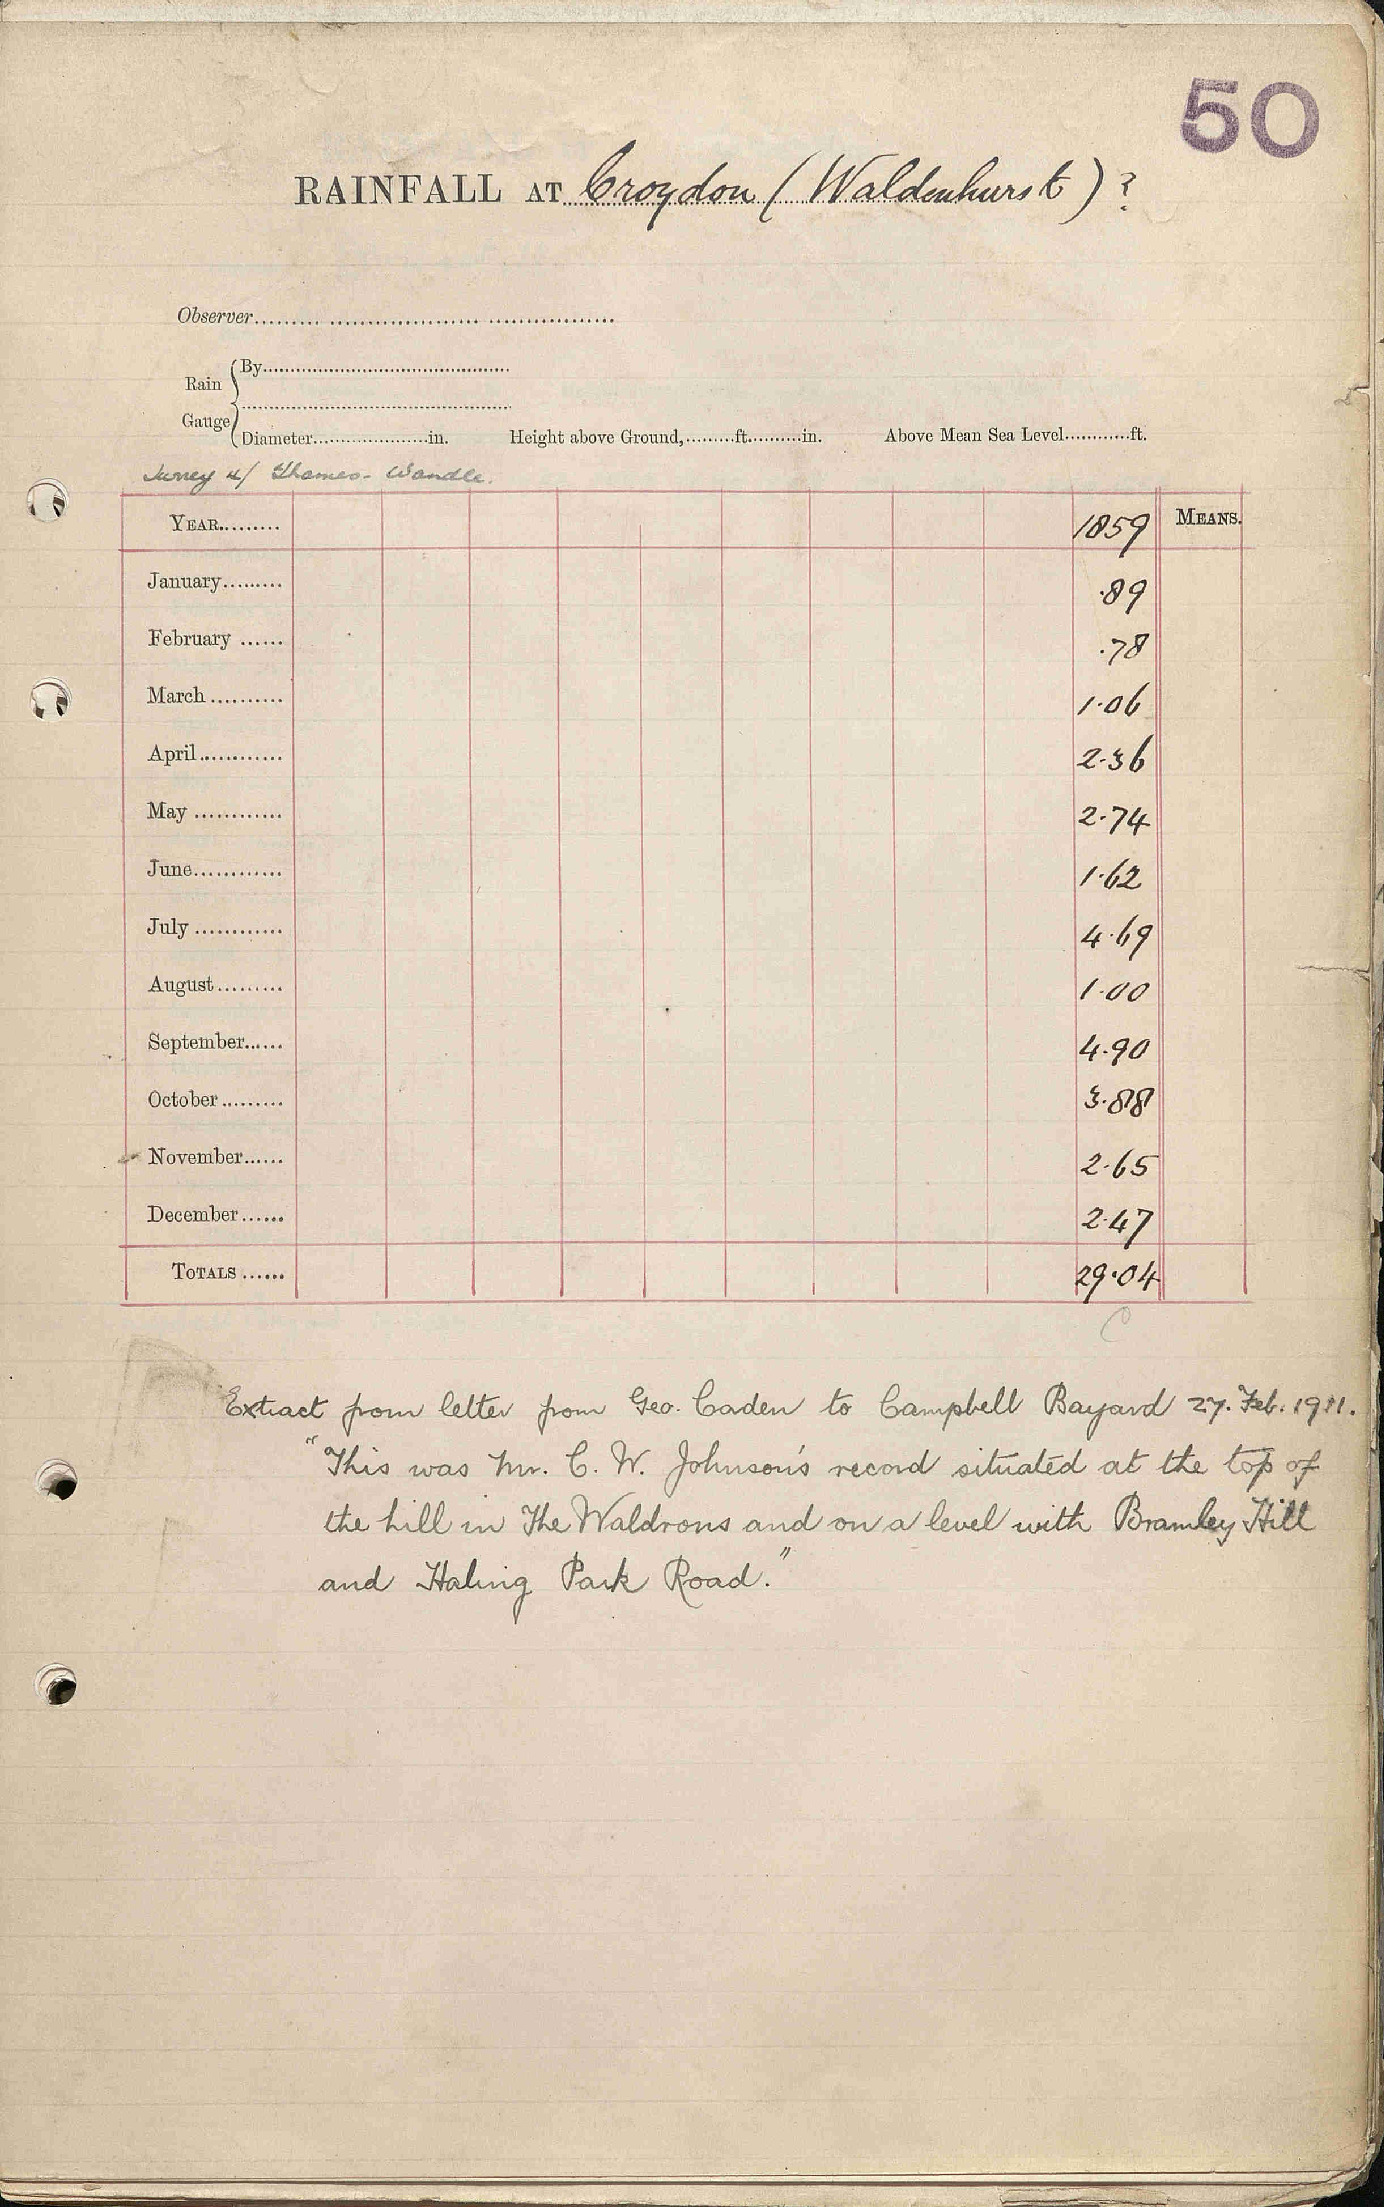 50
RAINFALL AT Croydon (Waldenhurst) ?
Observer
Rain Gauge
By
Diameter in. Height above Ground, ft. in. Above Mean Sea Level ft.
Surrey 4/ Thames - Wandle.
YEAR 1859 MEANS.
January .89
February .78
March 1.06
April 2.36
May 2.74
June 1.62
July 4.69
August 1.00
September 4.90
October 3.88
November 2.65
December 2.47
TOTALS 29.04
C
Extract from letter from Geo. Caden to Campbell Bayard 27. Feb. 1911.
"This was Mr. C. W. Johnson's record situated at the top of
the hill in The Waldrons and on a level with Bramley Hill
and Haling Park Road."